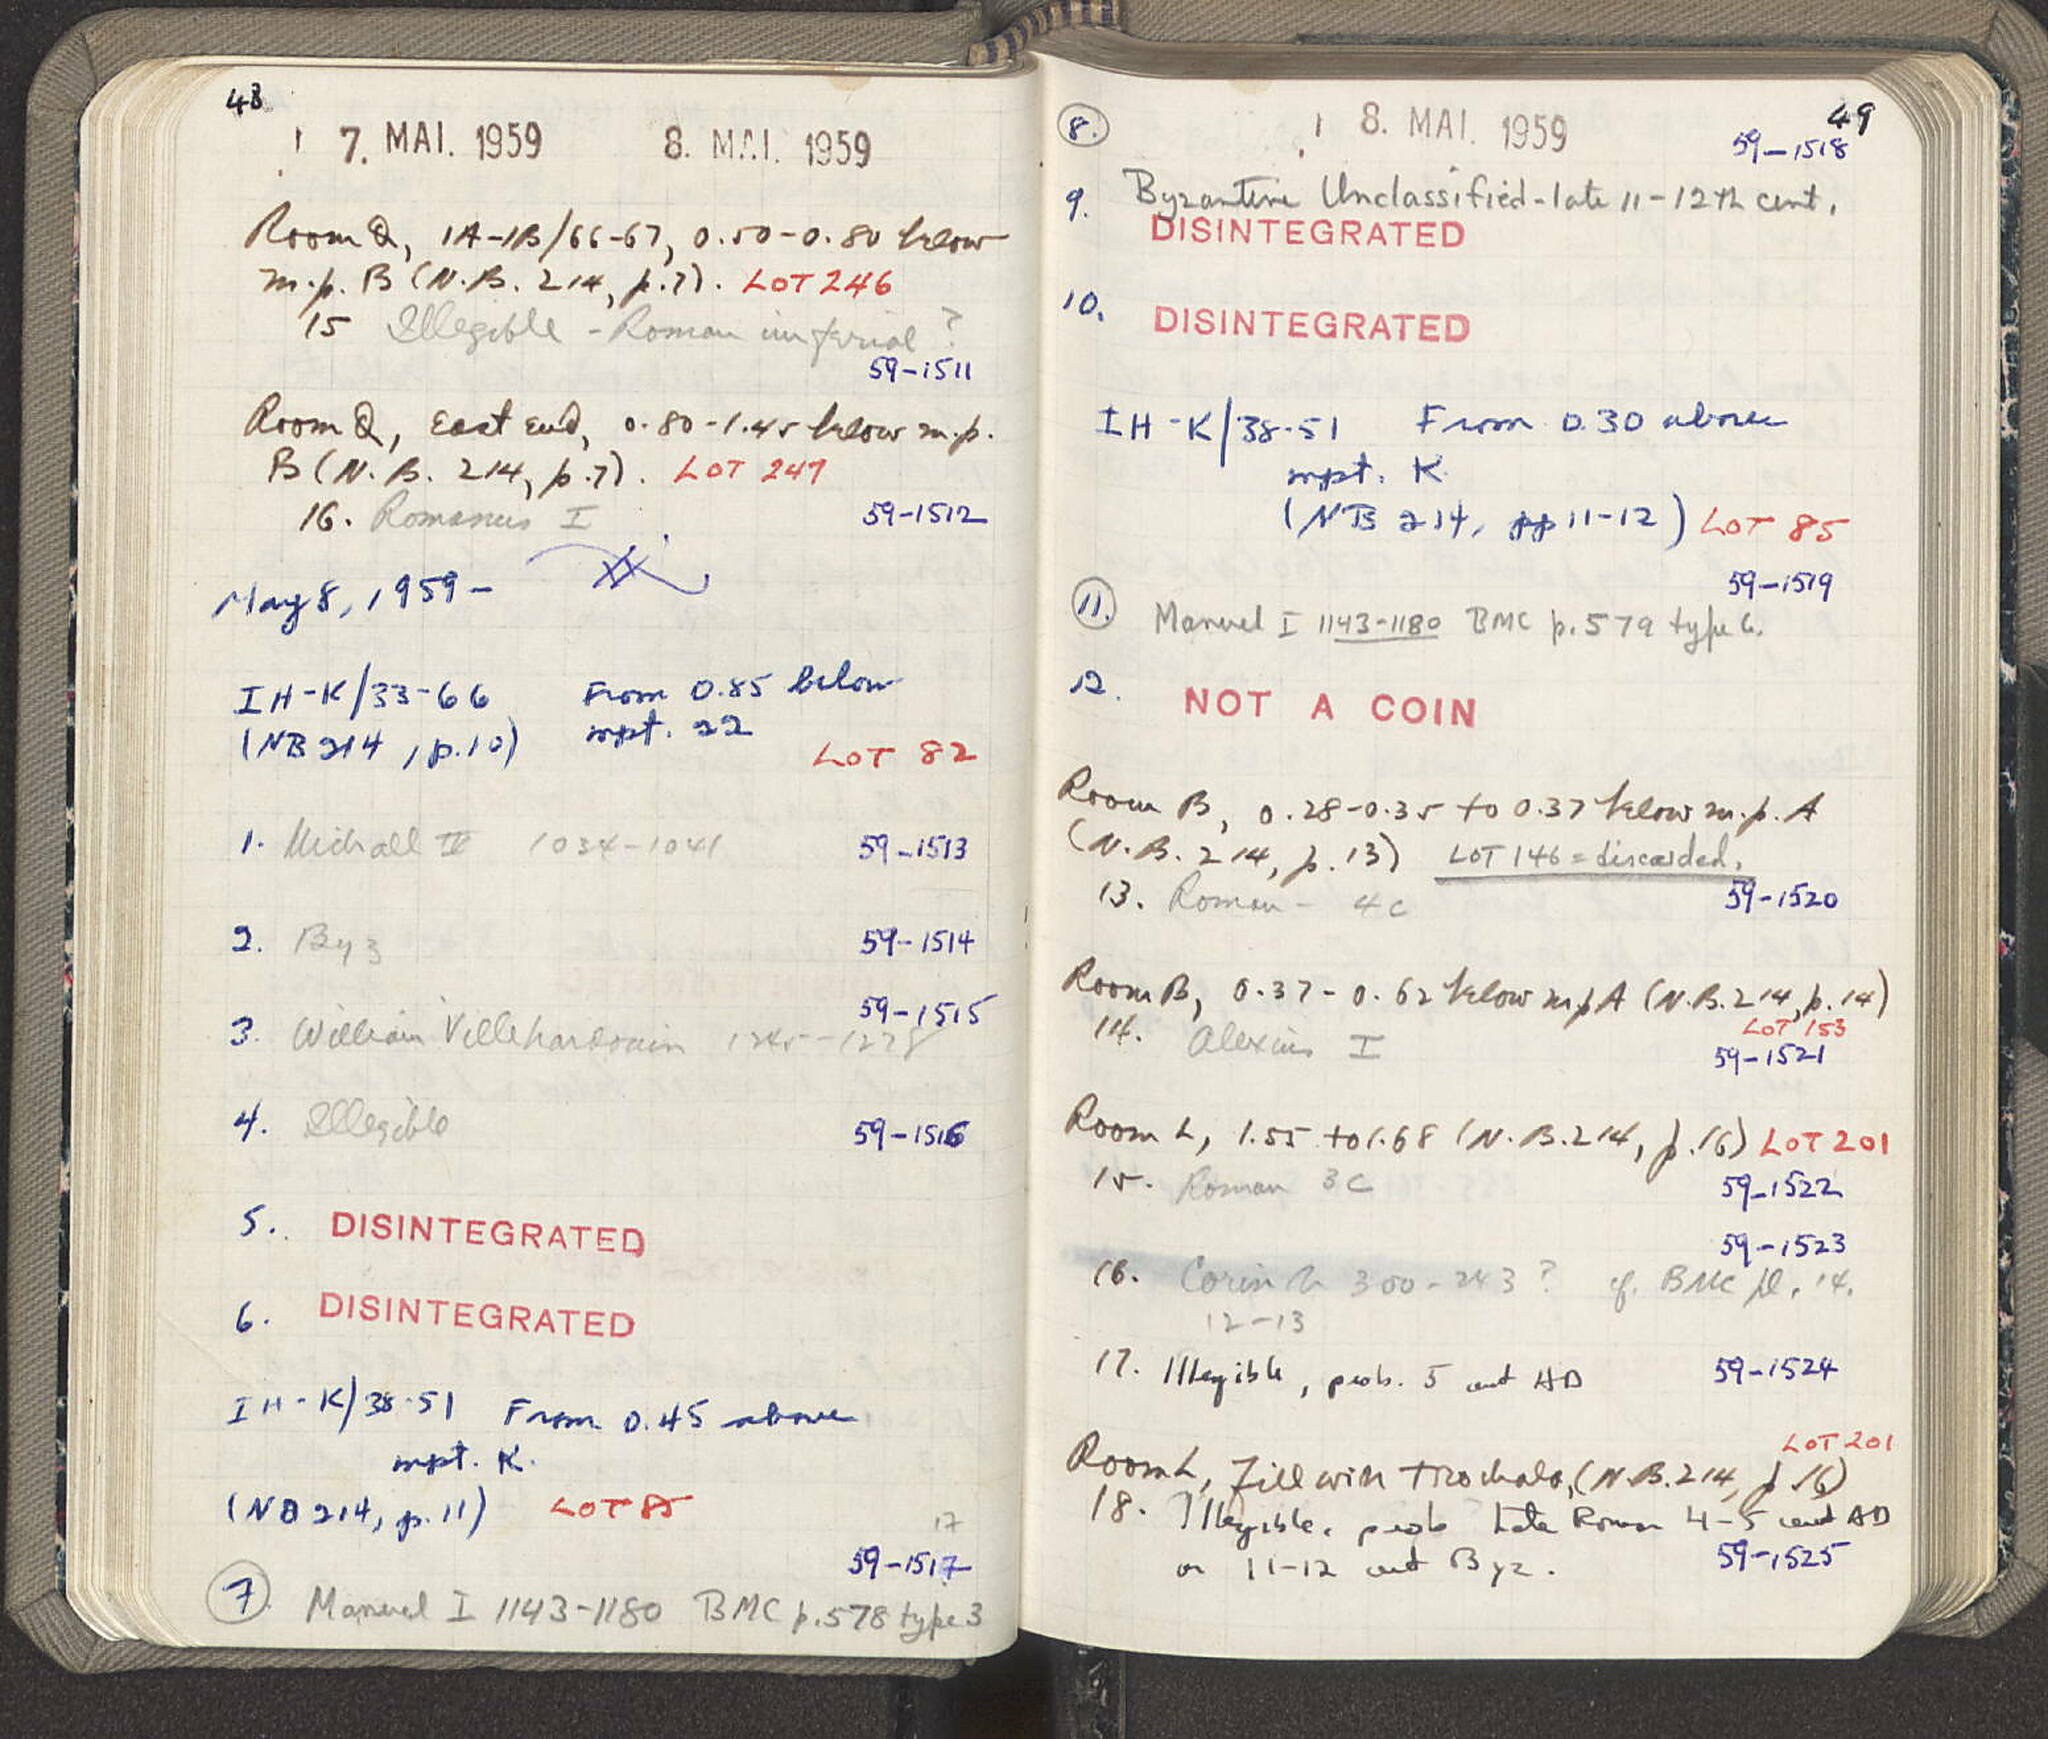 48
7. MAI. 1959 8. MAI. 1959
Room Q, 1A-1B/66-67, 0.50-0.80 below
m.p. B (N.B. 214, p.7). LOT 246
15 Illegible - Roman imperial ?
59-1511
Room Q, East End, 0.80-1.45 below m.p.
B (N.B. 214, p.7). LOT 247
16. Romanus I 59-1512
May 8, 1959 -
IH-K/33-66 From 0.85 below
(NB 214, p.10) mpt. 22
LOT 82
1. Michael IV 1034-1041 59-1513
2. Byz 59-1514
59-1515
3. William Villehardouin 1245-1278
4. Illegible 59-1516
5. DISINTEGRATED
6. DISINTEGRATED
IH-K/38-51 From 0.45 above
mpt. K.
(NB 214, p.11) LOT 85
17
59-1517
7. Manuel I 1143-1180 BMC p.578 type 3
49
8. 8. MAI. 1959
59-1518
9. Byzantine Unclassified - late 11-12th cent.
DISINTEGRATED
10. DISINTEGRATED
IH-K/38-51 From 0.30 above
mpt. K
(NB 214, pp 11-12) LOT 85
59-1519
11. Manuel I 1143-1180 BMC p.579 type 6.
12. NOT A COIN
Room B, 0.28-0.35 to 0.37 below m.p. A
(N.B. 214, p.13) LOT 146 = discarded.
13. Roman - 4c 59-1520
Room B, 0.37-0.62 below m.p A (N.B. 214, p.14)
LOT 153
14. Alexius I 59-1521
Room L, 1.55 to 1.68 (N.B. 214, p.16) LOT 201
15. Roman 3c 59-1522
59-1523
16. Corinth 300-243? cf. BMC pl. 14.
12-13
17. Illegible, prob. 5 cent AD 59-1524
LOT 201
Room L, Fill with trochala, (N.B. 214, p 16)
18. Illegible. prob Late Roman 4-5 cent AD
or 11-12 cent Byz. 59-1525